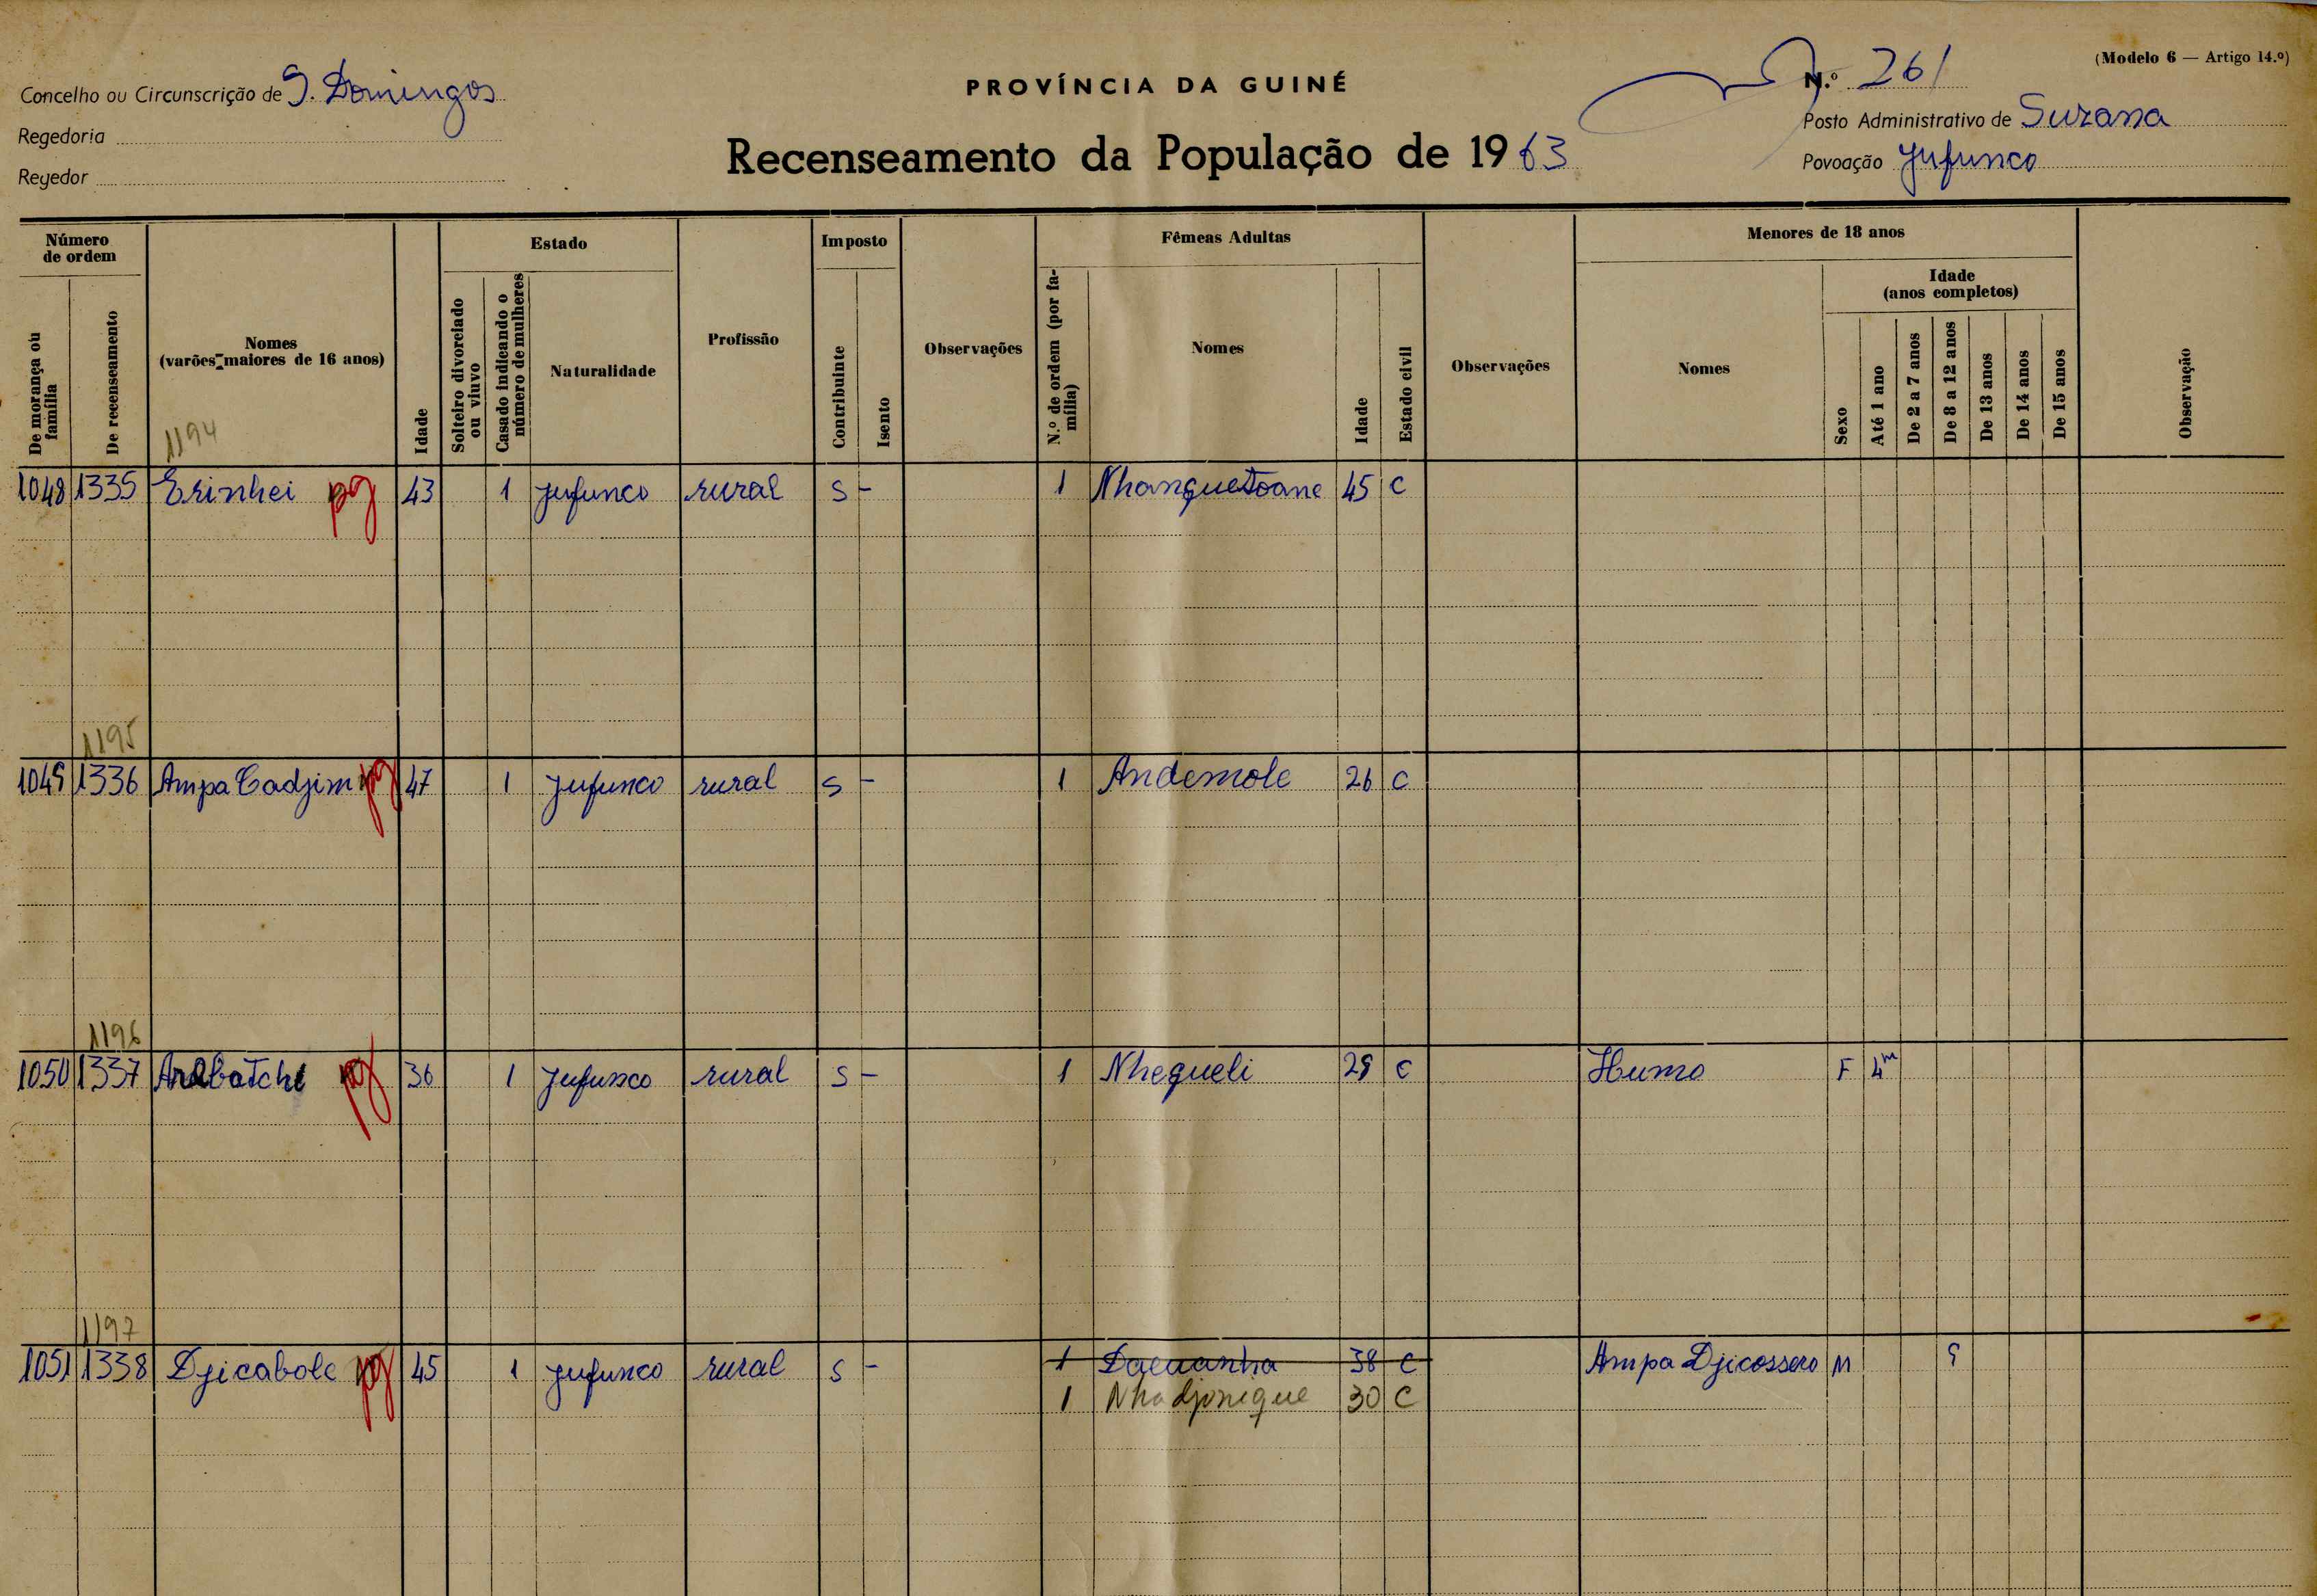 (Modelo 6 — Artigo 14.º)
PROVÍNCIA DA GUINÉ
N.º 261
Concelho ou Circunscrição de S. Domingos
Posto Administrativo de Suzana
Regedoria
Recenseamento da População de 1963
Povoação Jufunco
Regedor
Número de ordem
De morança ou família
De recenseamento
Nomes
(varões maiores de 16 anos)
Idade
Estado
Solteiro divorciado ou viuvo
Casado indicando o número de mulheres
Naturalidade
Profissão
Imposto
Contribuinte
Isento
Observações
Fêmeas Adultas
N.º de ordem (por família)
Nomes
Idade
Estado civil
Observações
Menores de 18 anos
Nomes
Sexo
Idade
(anos completos)
Até 1 ano
De 2 a 7 anos
De 8 a 12 anos
De 13 anos
De 14 anos
De 15 anos
Observação
1194
1048 1335 Erinhei pg 43 1 Jufunco rural S - 1 NhanqueToane 45 C
1195
1049 1336 Ampa Cadjim pg 47 1 Jufunco rural S - 1 Andemole 26 C
1196
1050 1337 pg 36 1 Jufunco rural S - 1 Nhequeli 29 C Humo F 4m
1197
1051 1338 Djicabole pg 45 1 Jufunco rural S - 1 38 C Ampa Djicossero M 9
1 Nhadjonique 30 C